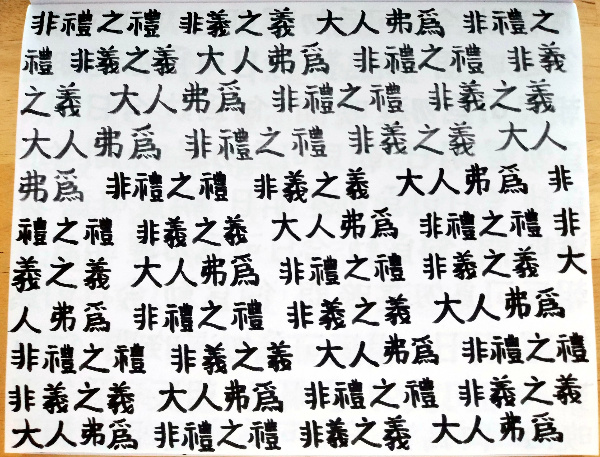 非禮之禮 非義之義 大人弗爲 非禮之
禮 非義之義 大人弗爲 非禮之禮 非義
之義 大人弗爲 非禮之禮 非義之義
大人弗爲 非禮之禮 非義之義 大人
弗爲 非禮之禮 非義之義 大人弗爲 非
禮之禮 非義之義 大人弗爲 非禮之禮 非
義之義 大人弗爲 非禮之禮 非義之義 大
人弗爲 非禮之禮 非義之義 大人弗爲
非禮之禮 非義之義 大人弗爲 非禮之禮
非義之義 大人弗爲 非禮之禮 非義之義
大人弗爲 非禮之禮 非義之義 大人弗爲